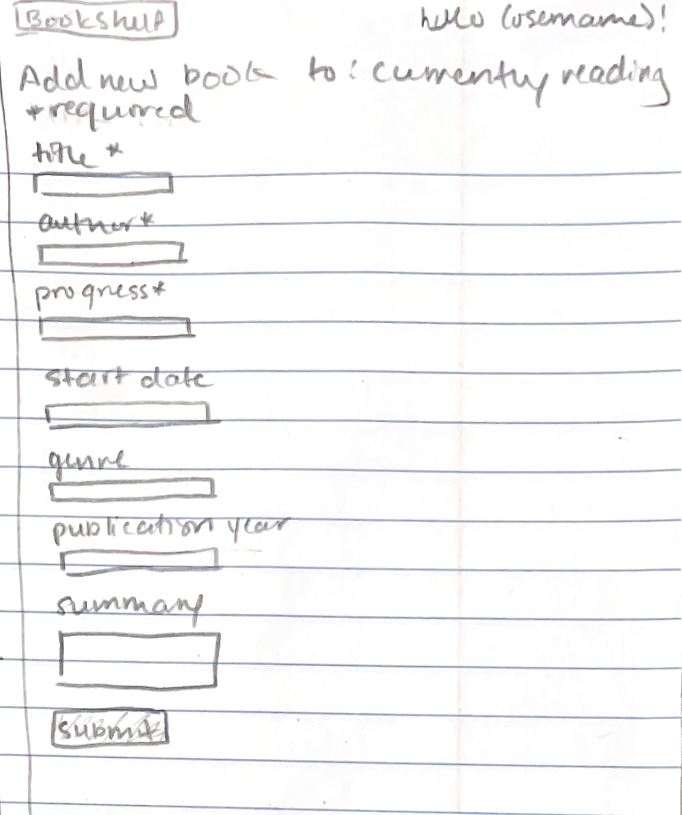 Bookshelf hello (username)!
Add new book to: currently reading
*required
title *
author*
progress*
start date
genre
publication year
summary
submit